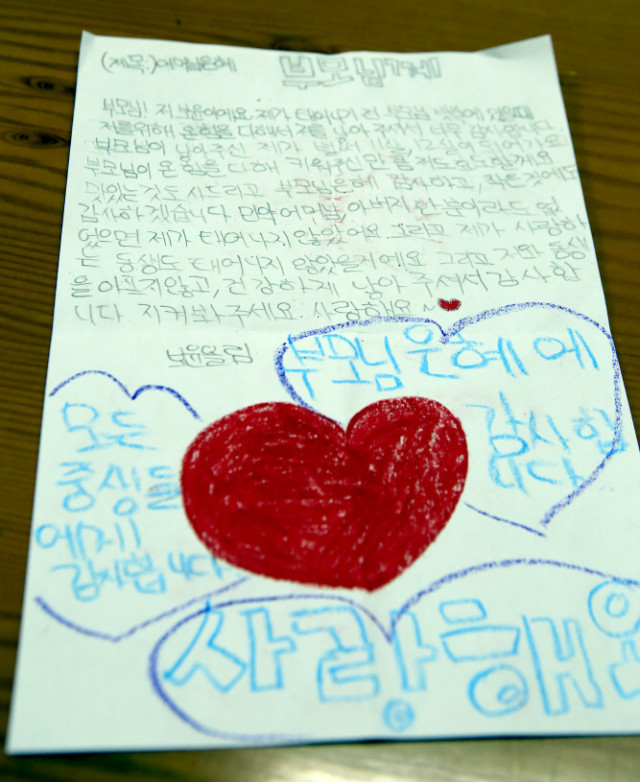 (제목:)어머님은혜 부모님께
부모님! 저 보윤이에요. 제가 태어나기 전 부모님 뱃속에 있을때
저를위해 온힘을 다해서 저를 낳아 주셔서 너무 감사합니다.
부모님이 낳아주신 제가 벌써 11살, 12살이 되어가요.
부모님이 온 힘을 다해 키워주신만큼 저도효도할게요
맛있는것도 사드리고 부모님은혜 감사하고, 작은것에도
감사하겠습니다 만약 어머님, 아버지 한 분이라도 없
었으면 제가 태어나지 않았어요. 그리고 제가 사랑하
는 동생도 태어나지 않았을거에요. 그리고 저와 동생
을 아프지않고, 건강하게 낳아 주셔서 감사합
니다 지켜봐 주세요. 사랑해요~
보윤올림
부모님 은혜에
감사합
니다
모든
중생들
에게
감사합니다
사랑해요